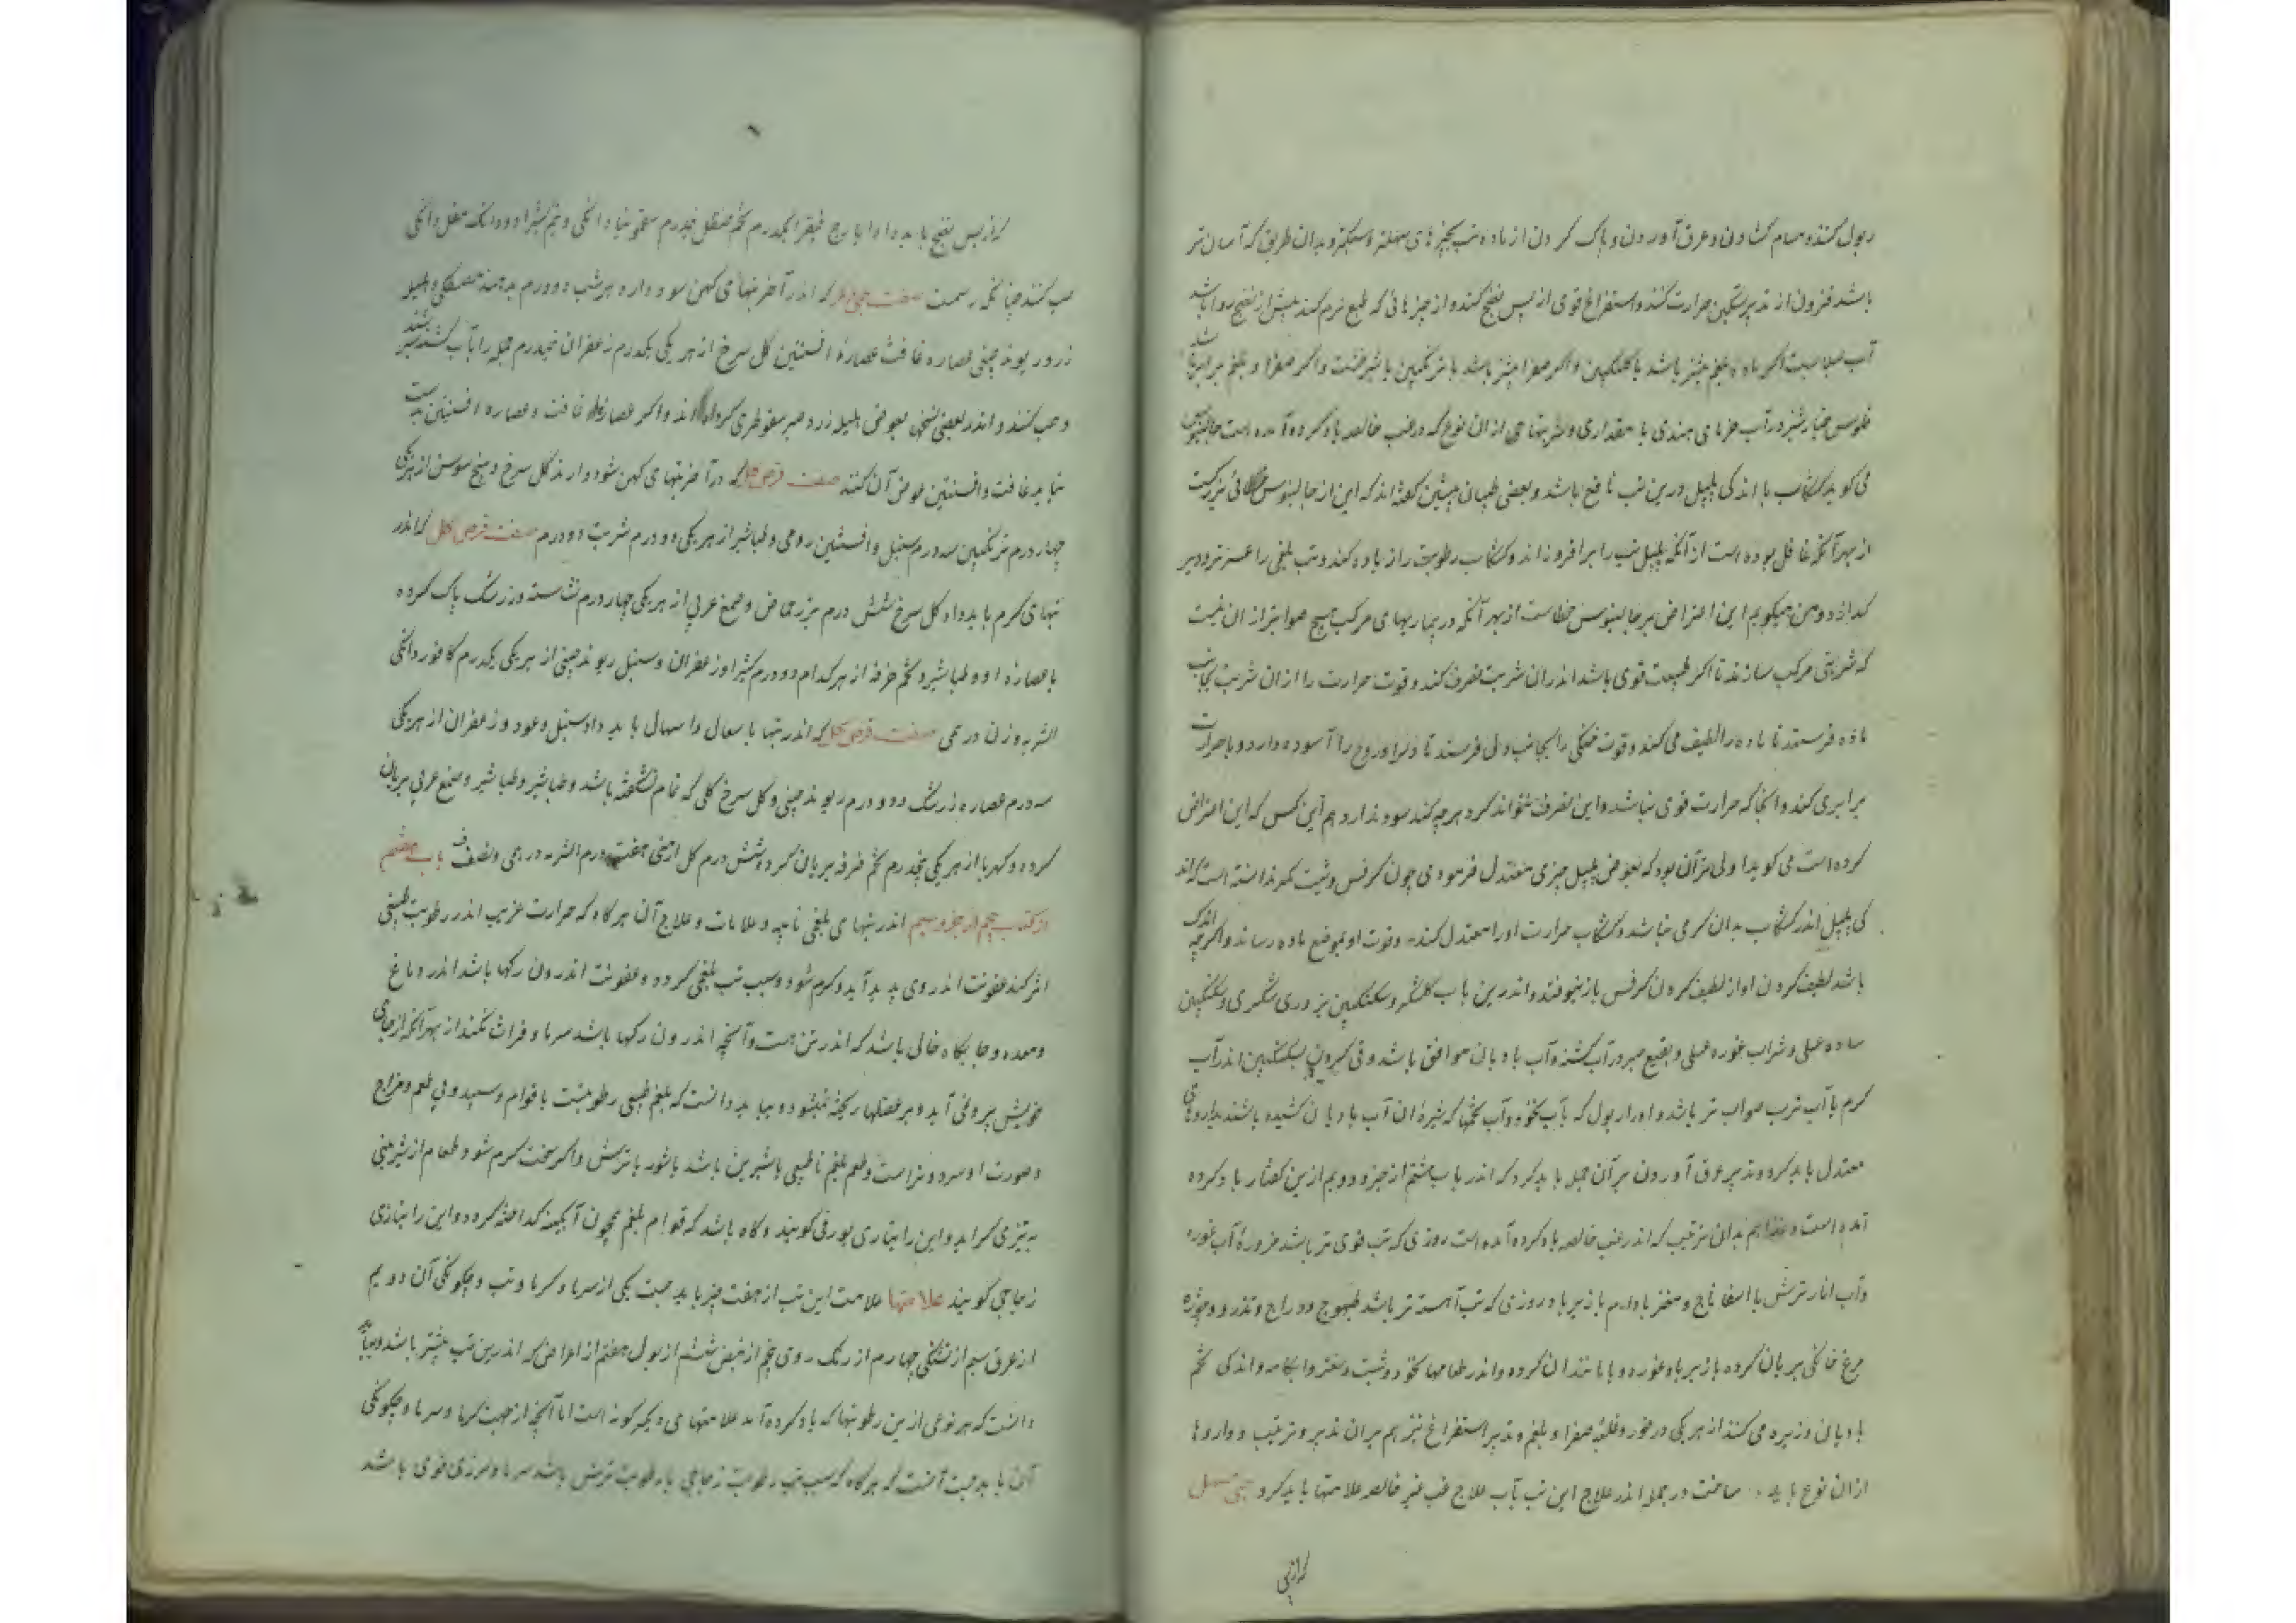 و بول کنند و مسام کشادن و عرق آوردن و پاک کردن از ماده تب بچیزهای مسهله و سکنه و بدان طریق که آسان تر
باشد فزون از تدبیر تسکین حرارت کنند و استفراغ قوی از پس نضج کنند و از چیزهائی که طبع نرم کند پیش از نضج روا باشد
آب صلابیت اکر ماده بلغم بیشتر باشد با کلنکبین و اکر صفرا بیشتر باشد با ترنکبین یا شیرخشت و اکر صفرا و بلغم برابر باشد
فلوس خیارشنبر در آب خرمای هندی با مقداری و شربتهای از ان نوع که در غب خالصه یاد کرده آمده است جالینوس
می کوید کشکاب با اندکی پلپل درین تب نافع باشد و بعضی طبیبان پیشین کفته اند که این از جالینوس خطائی بزرکست
از بهر آنکه غافل بوده است از آنکه پلپل تب را برافروزاند و کشکاب رطوبت را زیاده کند و تب بلغمی را عسرتر و دیر
کدازد و من میکویم این اعتراض بر جالینوس خطاست از بهر آنکه در بیماریهای مرکب هیچ صوابتر از ان نیست
که شربتی مرکب سازند تا اکر طبیعت قوی باشد اندران شربت تصرف کند و قوت حرارت را از ان شربت بجانب
ماده فرستد تا ماده را لطیف می کند و قوت خنکی را بجانب دل فرستد تا دل را و روح را آسوده دارد و با حرارت
برابری کند و آنجا که حرارت قوی نباشد و این تصرف نتواند کرد هرچه کند سود ندارد هم این کس که این اعتراض
کرده است می کوید اولی تر آن بود که بعوض پلپل چیزی معتدل فرمودی چون کرفس و شبت کمر ندانسته است که اند
کی پلپل اندر کشکاب بدان کرمی نباشد و کشکاب حرارت او را معتدل کند و قوت او بموضع ماده رساند و اکرچه اندک
باشد لطیف کردن او از لطیف کردن کرفس باز نیوفتد و اندرین باب کلشکر و سکنکبین بزوری شکری و سکنکبین
ساده عسلی و شراب غوره عسلی و نقیع صبر در آب کشنه و آب بادیان موافق باشد و قی کردن بسکنکبین اندر آب
کرم با آب ترب صواب تر باشد و ادرار بول که بآب نخود و آب تخمها که شیره ان آب بادیان کشیده باشند بداروهای
معتدل باید کرد و تدبیر عرق آوردن بر آن جمله باید کرد که اندر باب هشتم از جزو دویم ازین کفتار یاد کرده
آمده است و غذا هم بدان ترتیب که اندر غب خالصه یاد کرده آمده است روزی که تب قوی تر باشد مزوره آب غوره
و آب انار ترش با اسفاناج و مغز بادام با زیربا و روزی که تب آهسته تر باشد طیهوج و دراج و تذرو و جوژه
مرغ خانکی بریان کرده با زیربا و غوره و با مانند ان کرده و اندر طعامها نخود و شبت و سعتر و آبکامه و اندکی تخم
بادیان و زیره می کنند از هر یکی در خور و غلبه صفرا و بلغم و تدبیر استفراغ نیز هم بران تدبیر و ترتیب و داروها
از ان نوع باید ساخت در جمله اندر علاج این تب بآب علاج غب غیر خالصه علامتها باید کرد حبی مسهل
که از پس
که از پس نضج باید داد ایارج فیقرا یکدرم تخم حنظل نیم درم سقمونیا دانکی و نیم کثیرا دو دانک مقل دانکی
حب کنند چنانکه رسمست صفت حبی دیکر که اندر آخر تبهای کهن سود دارد هر شب دو درم بدهند مصطکی و هلیله
زرد ریوند چینی عصاره غافث عصاره افسنتین کل سرخ از هر یکی یکدرم زعفران نیم درم جمله را بآب کشنه بسرشند
و حب کنند و اندر بعضی نسخها بعوض هلیله زرد صبر سقوطری کرده اند و اکر عصاره غافث و عصاره افسنتین بدست
نیاید غافث و افسنتین عوض آن کنند صفت قرص کل که در آخر تبهای کهن سود دارد کل سرخ و بیخ سوسن از هر یکی
چهار درم ترنکبین سه درم سنبل و افسنتین رومی و طباشیر از هر یکی دو درم شربت دو درم صفت قرص کل که اندر
تبهای کرم باید داد کل سرخ شش درم بزر حماض و صمغ عربی از هر یکی چهار درم نشاسته و زرشک پاک کرده
یا عصاره او و طباشیر و تخم خرفه از هر کدام دو درم کثیرا و زعفران و سنبل ریوند چینی از هر یکی یکدرم کافور دانکی
الشربه وزن درمی صفت قرص کل که اندر تبها با سعال و اسهال باید داد سنبل و عود و زعفران از هر یکی
سه درم عصاره زرشک دو درم ریوند چینی و کل سرخ کلی که تمام نشکفته باشد و طباشیر و طباشیر و صمغ عربی بریان
کرده و کهربا از هر یکی پنجدرم تخم خرفه بریان کرده شش درم کل ارمنی هفت درم الشربه درمی و نصف باب هفتم
از کتاب پنجم از جزو سیم اندر تبهای بلغمی نایبه و علامات و علاج آن هرکاه که حرارت غریب اندر رطوبت بلغمی
اثر کند عفونت اندر وی پدید آید و کرم شود و سبب تب بلغمی کردد و عفونت اندرون رکها باشد اندر دماغ
و معده و جایکاه خالی باشد که اندر تن هست و آنچه اندرون رکها باشد سرما و فراشا نکند از بهر آنکه از جای
خویش بیرون نمی آید و بر عضلها ریخته نمیشود و بباید دانست که بلغم طبیعی رطوبتیست با قوام و سپید و بی طعم و مزاج
و صورت او سرد و تر است و طعم بلغم ناطبیعی یا شیرین باشد یا شور یا ترش و اکر سخت کرم شود طعام از شیرینی
به تیزی کراید و این را بتازی بورقی کویند و کاه باشد که قوام بلغم همچون آبکینه کداخته کردد و این را بتازی
زجاجی کویند علامتها علامت این تب از هفت چیز باید جست یکی از سرما و کرما و تب و چکونکی آن دویم
از عرق سیم از تشنکی چهارم از رنک روی پنجم از نبض ششم از بول هفتم از اعراض که اندرین تب بیشتر باشد و بباید
دانست که هر نوعی ازین رطوبتها که یاد کرده آمد علامتهای دیکر کونه است اما آنچه از جهت کرما و سرما و چکونکی
آن باید جست آنست که هرکاه که سبب تب رطوبت زجاجی یا رطوبت ترش باشد سرما و لرزی قوی باشد